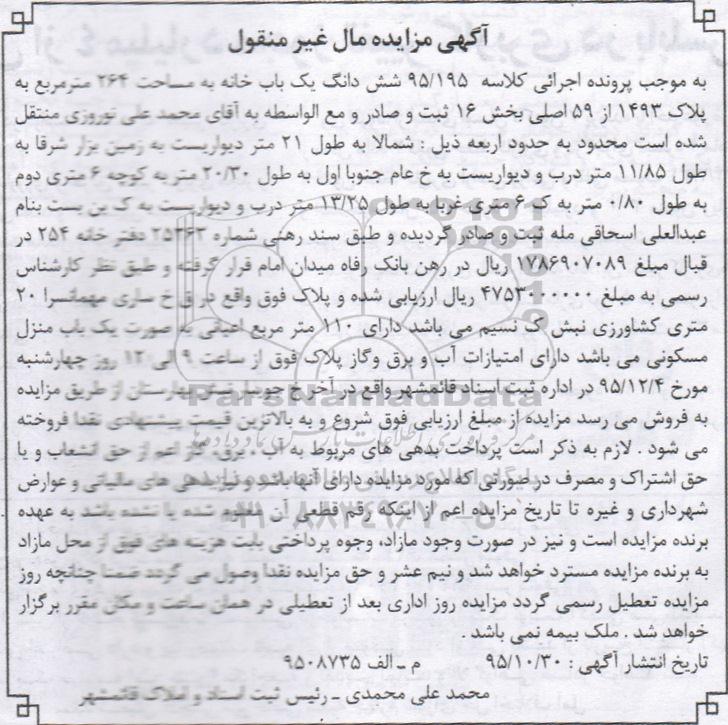 آگهی مزایده مال غیر منقول
به موجب پرونده اجرائی کلاسه ۹۵/۱۹۵ شش دانگ یک باب خانه به مساحت ۲۶۴ مترمربع به
پلاک ۱۴۹۳ از ۵۹ اصلی بخش ۱۶ ثبت و صادر و مع الواسطه به آقای محمد علی نوروزی منتقل
شده است محدود به حدود اربعه ذیل : شمالا به طول ۲۱ متر دیواریست به زمین بزار شرقا به
طول ۱۱/۸۵ متر درب و دیواریست به خ عام جنوبا اول به طول ۲۰/۳۰ متر به کوچه ۶ متری دوم
به طول ۰/۸۰ متر به ک ۶ متری غربا به طول ۱۳/۲۵ متر درب و دیواریست به ک بن بست بنام
عبدالعلی اسحاقی مله ثبت و صادر گردیده و طبق سند رهنی شماره ۲۵۳۶۳ دفتر خانه ۲۵۴ در
قبال مبلغ ۱۷۸۶۹۰۷۰۸۹ ریال در رهن بانک رفاه میدان امام قرار گرفته و طبق نظر کارشناس
رسمی به مبلغ ۴۷۵۳۰۰۰۰۰۰ ریال ارزیابی شده و پلاک فوق واقع در ق خ ساری مهمانسرا ۲۰
متری کشاورزی نبش ک نسیم می باشد دارای ۱۱۰ متر مربع اعیانی به صورت یک باب منزل
مسکونی می باشد دارای امتیازات آب و برق وگاز پلاک فوق از ساعت ۹ الی ۱۲ روز چهارشنبه
مورخ ۹۵/۱۲/۴ در اداره ثبت اسناد قائمشهر واقع در آخر خ جویبار نبش بهارستان از طریق مزایده
به فروش می رسد مزایده از مبلغ ارزیابی فوق شروع و به بالاترین قیمت پیشنهادی نقدا فروخته
می شود . لازم به ذکر است پرداخت بدهی های مربوط به آب ، برق، گاز اعم از حق انشعاب و یا
حق اشتراک و مصرف در صورتی که مورد مزایده دارای آنها باشد و نیز بدهی های مالیاتی و عوارض
شهرداری و غیره تا تاریخ مزایده اعم از اینکه رقم قطعی آن معلوم شده یا نشده باشد به عهده
برنده مزایده است و نیز در صورت وجود مازاد، وجوه پرداختی بابت هزینه های فوق از محل مازاد
به برنده مزایده مسترد خواهد شد و نیم عشر و حق مزایده نقدا وصول می گردد ضمنا چنانچه روز
مزایده تعطیل رسمی گردد مزایده روز اداری بعد از تعطیلی در همان ساعت و مکان مقرر برگزار
خواهد شد . ملک بیمه نمی باشد .
تاریخ انتشار آگهی : ۹۵/۱۰/۳۰ م ـ الف ۹۵۰۸۷۳۵
محمد علی محمدی ـ رئیس ثبت اسناد و املاک قائمشهر
ParsNamadData